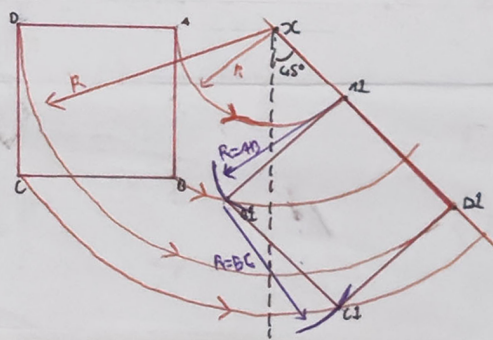 D
A
X
R
R
45°
A1
R=AB
C
B
B1
D1
R=BC
C1